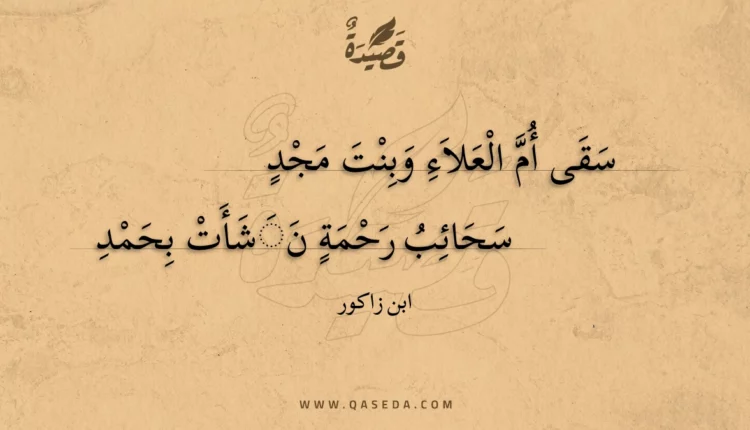 قَصِيدَةٌ
سَقَى أُمَّ الْعَلاَءِ وَبِنْتَ مَجْدٍ
سَحَائِبُ رَحْمَةٍ نَ◌َشَأَتْ بِحَمْدِ
ابن زاكور
WWW.QASEDA.COM